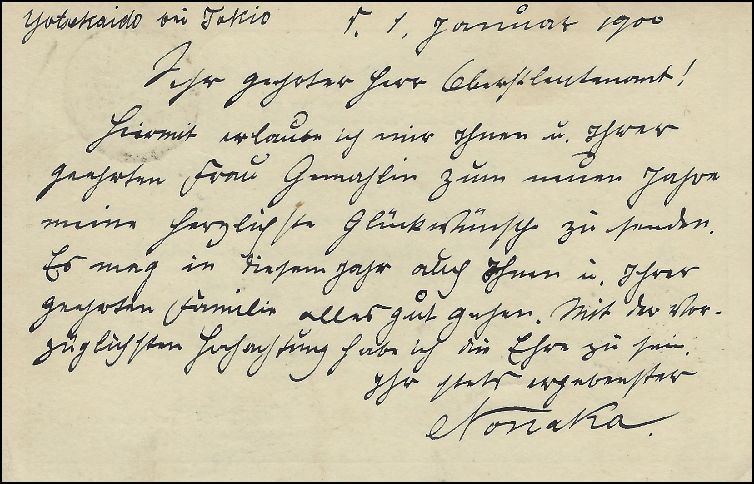 Yotsukaido bei Tokio d. 1. Januar 1900
Sehr geehrter Herr Oberstleutenant!
Hiermit erlaube ich mir Ihnen u. Ihrer
geehrten Frau Gemahlin zum neuen Jahre
meine herzlichste Glückwünsche zu senden.
Es mag in diesem Jahr auch Ihnen u. Ihrer
geehrten Familie alles gut gehen. Mit der vor-
züglichsten Hochachtung habe ich die Ehre zu sein.
Ihr stets ergebenster
Nonaka.